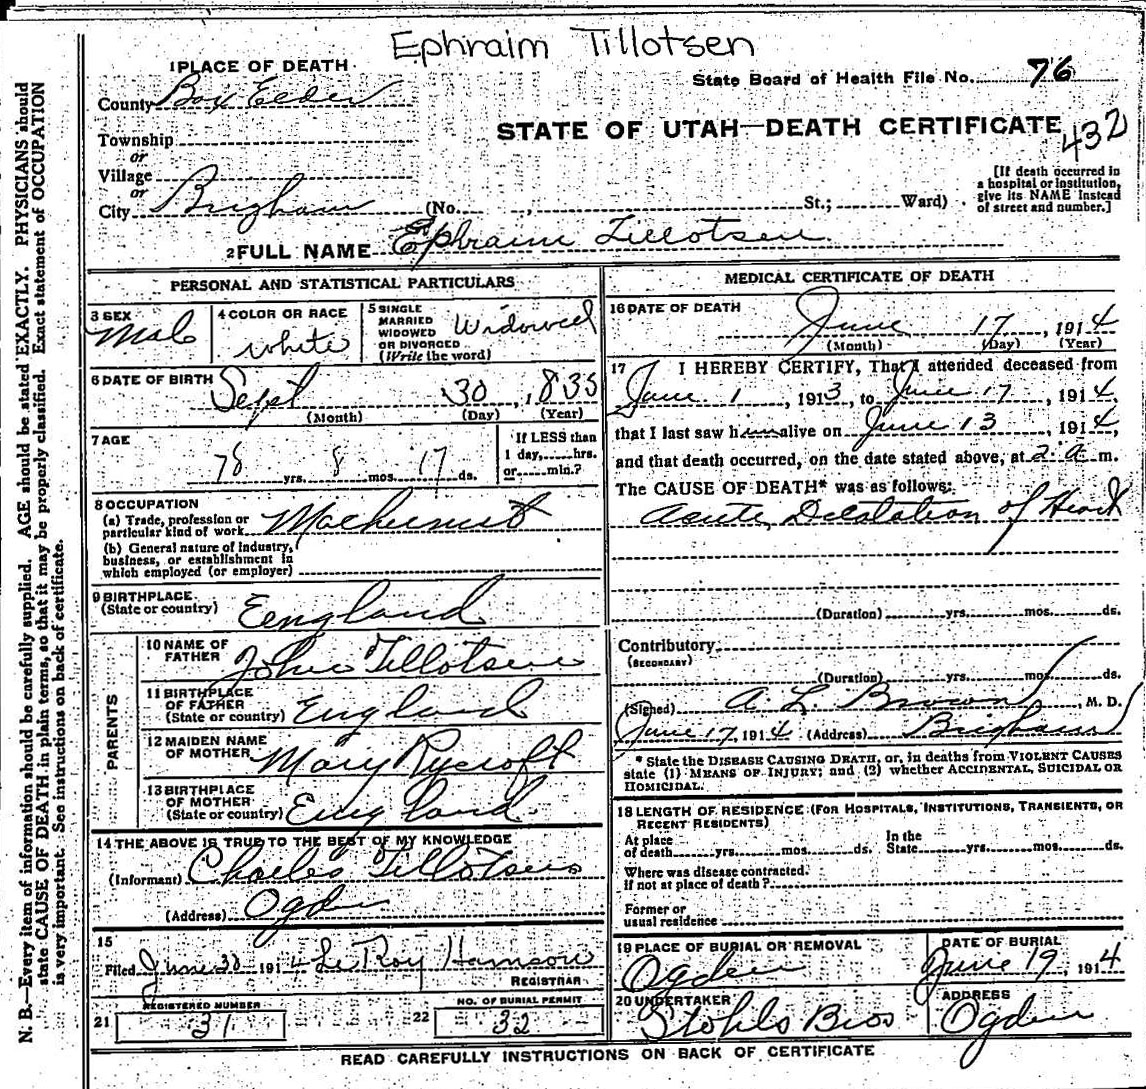 Ephraim Tillotsen
1 PLACE OF DEATH
State Board of Health File No. 76
County Box Elder
STATE OF UTAH—DEATH CERTIFICATE
432
Township
or
Village
or
City Brigham (No. , St.; Ward)
[If death occurred in
a hospital or institution,
give its NAME instead
of street and number.]
2 FULL NAME Ephraim Tillotsen
PERSONAL AND STATISTICAL PARTICULARS
3 SEX
Male
4 COLOR OR RACE
white
5 SINGLE
MARRIED
WIDOWED
OR DIVORCED
(Write the word)
Widowed
6 DATE OF BIRTH
Sept 30, 1835
(Month) (Day) (Year)
7 AGE
78 yrs. 8 mos. 17 ds.
If LESS than
1 day, hrs.
or min.?
8 OCCUPATION
(a) Trade, profession or
particular kind of work Machinist
(b) General nature of industry,
business, or establishment in
which employed (or employer)
9 BIRTHPLACE
(State or country)
Eengland
PARENTS
10 NAME OF
FATHER
John Tillotsen
11 BIRTHPLACE
OF FATHER
(State or country)
England
12 MAIDEN NAME
OF MOTHER
Mary Rycroft
13 BIRTHPLACE
OF MOTHER
(State or country)
England
14 THE ABOVE IS TRUE TO THE BEST OF MY KNOWLEDGE
(Informant) Charles Tillotsen
(Address) Ogden
15
Filed June 30 1914 Le Roy
REGISTRAR
REGISTERED NUMBER
21 31
NO. OF BURIAL PERMIT
22 32
MEDICAL CERTIFICATE OF DEATH
16 DATE OF DEATH
June 17, 1914
(Month) (Day) (Year)
17 I HEREBY CERTIFY, That I attended deceased from
June 1, 1913, to June 17, 1914
that I last saw him alive on June 13, 1914,
and that death occurred, on the date stated above, at 2 a m.
The CAUSE OF DEATH* was as follows:
Acute of Heart
(Duration) yrs. mos. ds.
Contributory
(SECONDARY)
(Duration) yrs. mos. ds.
(Signed) A. L. Brown, M. D.
June 17, 1914 (Address) Brigham
* State the DISEASE CAUSING DEATH, or, in deaths from VIOLENT CAUSES
state (1) MEANS OF INJURY; and (2) whether ACCIDENTAL, SUICIDAL OR
HOMICIDAL.
18 LENGTH OF RESIDENCE (FOR HOSPITALS, INSTITUTIONS, TRANSIENTS, OR
RECENT RESIDENTS)
At place
of death yrs. mos. ds.
In the
State yrs. mos. ds.
Where was disease contracted.
If not at place of death?
Former or
usual residence
19 PLACE OF BURIAL OR REMOVAL
Ogden
DATE OF BURIAL
June 19, 1914
20 UNDERTAKER
Stohls Bros
ADDRESS
Ogden
READ CAREFULLY INSTRUCTIONS ON BACK OF CERTIFICATE
N. B.—Every item of information should be carefully supplied. AGE should be stated EXACTLY. PHYSICIANS should
state CAUSE OF DEATH in plain terms, so that it may be properly classified. Exact statement of OCCUPATION
is very important. See instructions on back of certificate.